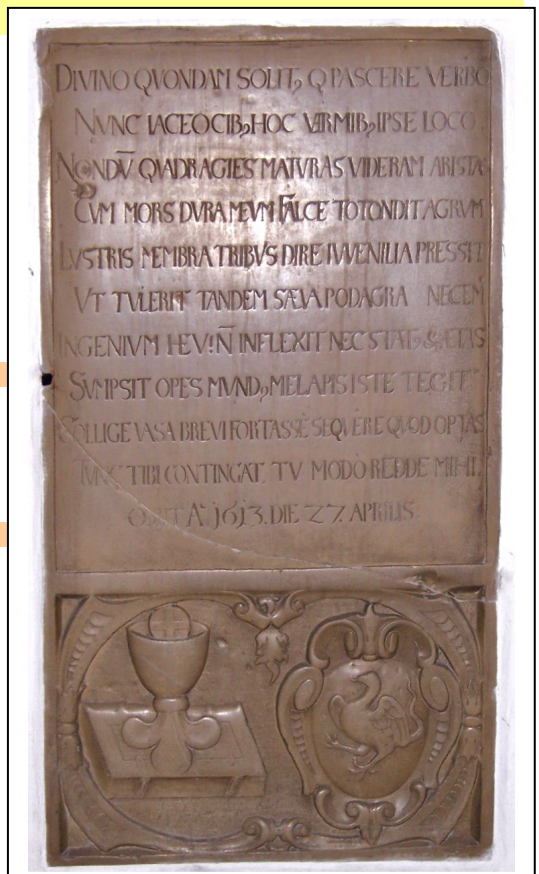 DIVINO QVONDAM SOLITꝰ Q PASCERE VERBO
NVNC IACEO CIBꝰ HOC VERMIBꝰ IPSE LOCO
NONDV̄ QVADRAGIES MATVRAS VIDERAM ARISTAS
CVM MORS DVRA MEVM FALCE TOTONDIT AGRVM
LVSTRIS MEMBRA TRIBVS DIRE IVVENILIA PRESSIT
VT TVLERIT TANDEM SÆVA PODAGRA NECEM
INGENIVM HEV! N̄ INFLEXIT NEC STATꝰ & ÆTAS
SVMPSIT OPES MVNDꝰ ME LAPIS ISTE TEGIT
COLLIGE VASA BREVI FORTASSE SEQVERE QVOD OPTAS
TVNC TIBI CONTINGAT TV MODO REDDE MIHI
OBIIT A° 1613. DIE 27. APRILIS